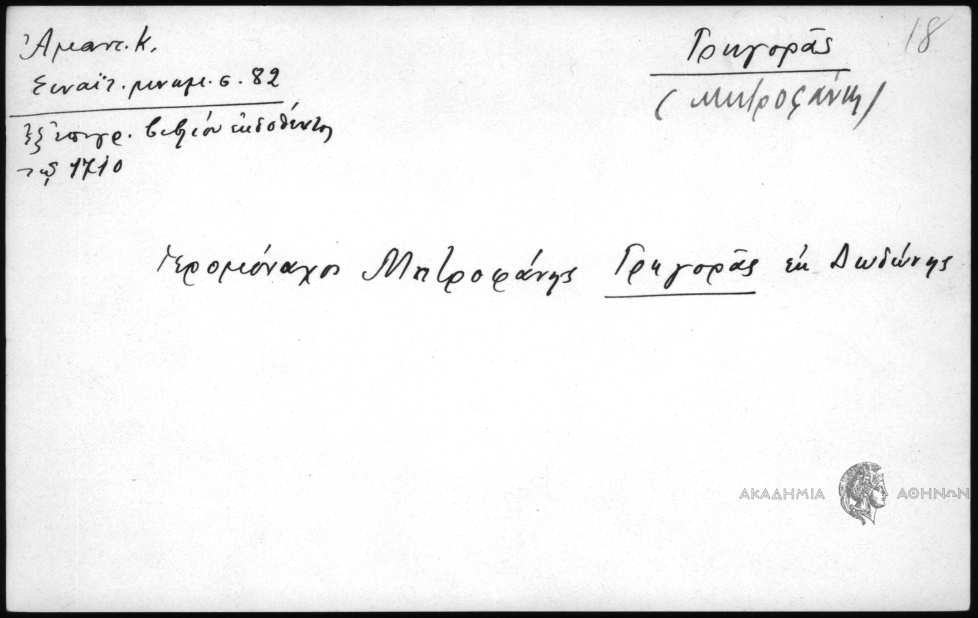 Ἀμαντ. Κ.
Σιναϊτ. μνημ. σ. 82
ἐξ ἐπιγρ. βιβλίου ἐκδοθέντος
τῷ 1710
Γρηγορᾶς
(Μητροφάνης)
18
ἱερομόναχος Μητροφάνης Γρηγορᾶς ἐκ Δωδώνης
ΑΚΑΔΗΜΙΑ ΑΘΗΝΩΝ